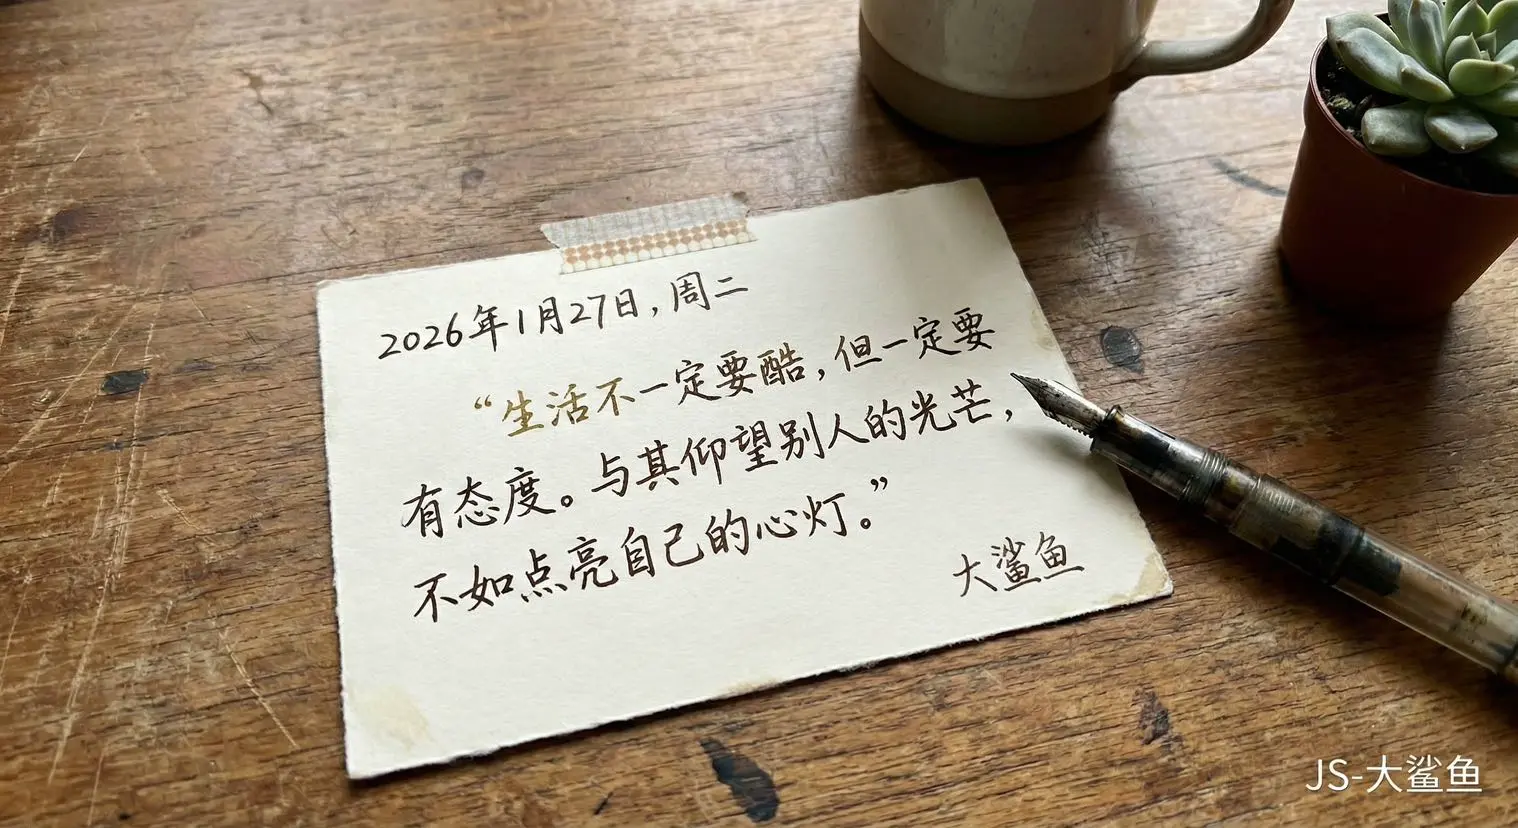 2026年1月27日，周二
“生活不一定要酷，但一定要
有态度。与其仰望别人的光芒，
不如点亮自己的心灯。”
大鲨鱼
JS-大鲨鱼